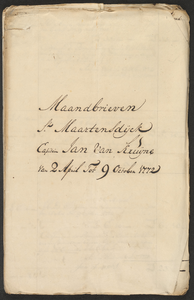 Maandbrieven
St Maartensdijck
Captn Jan Van Keuijne
Van 2 April Tot 9 October 1772